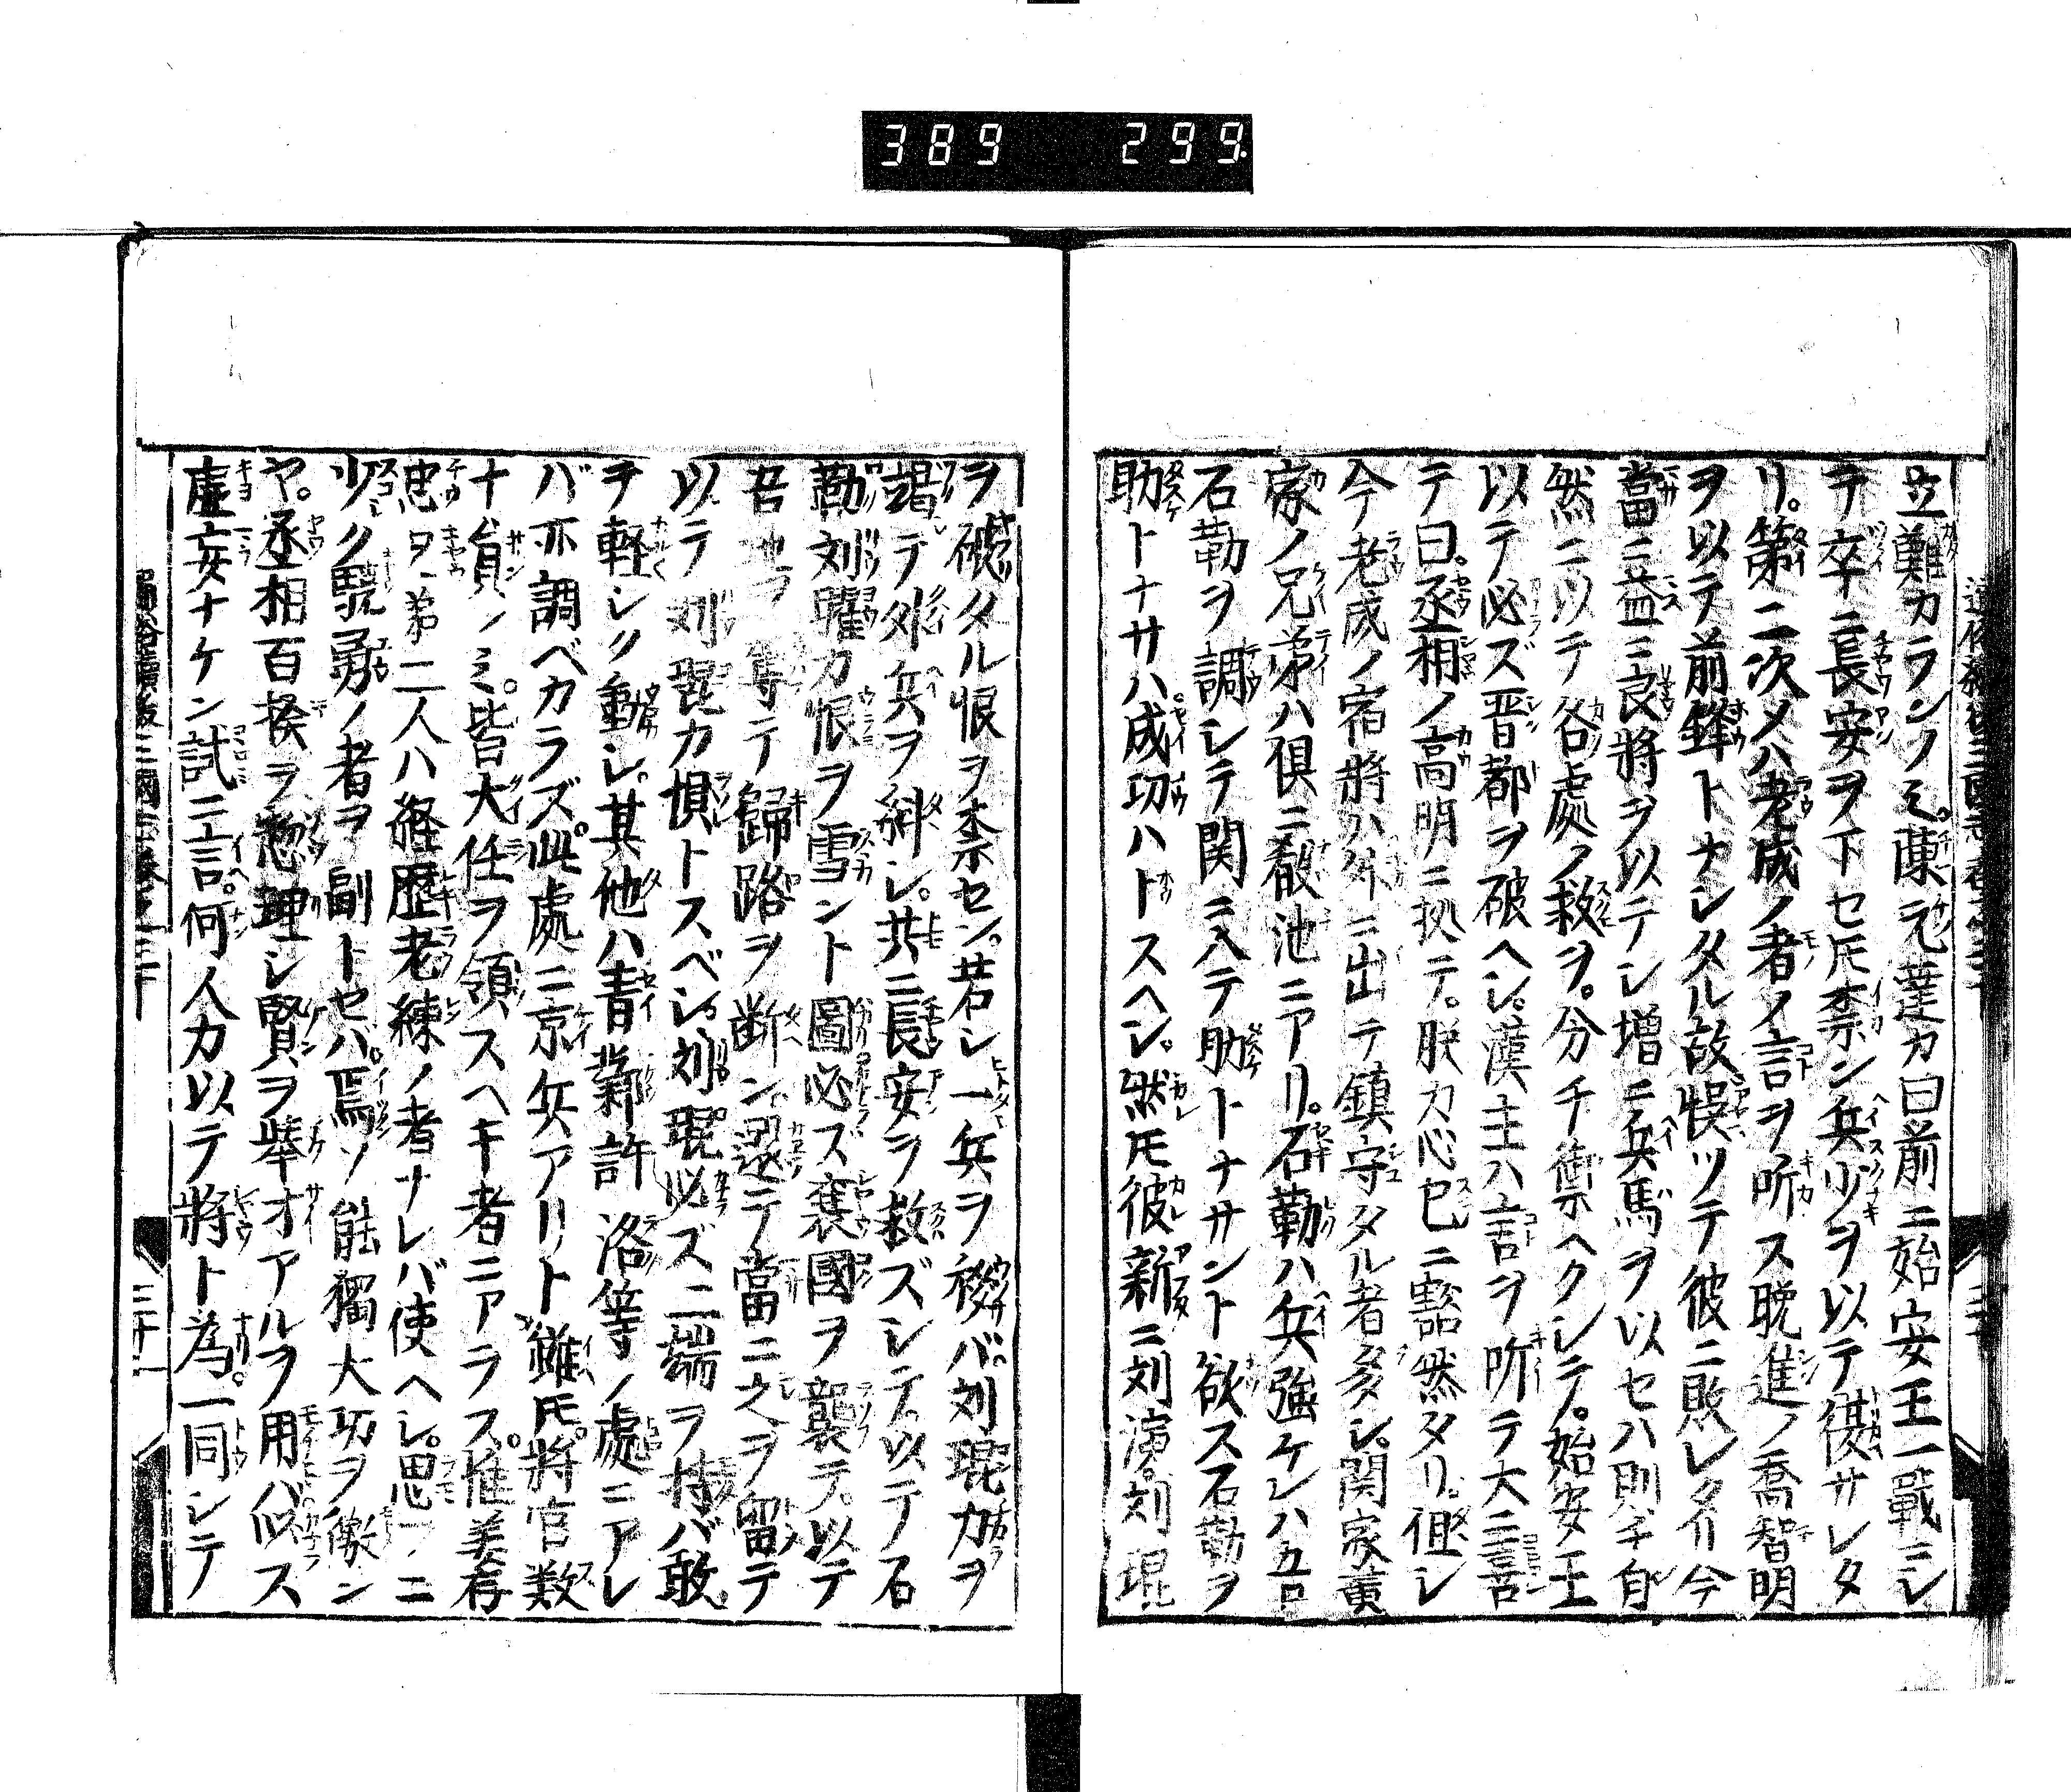 389 299
立難カランノミ。陳元達カ曰前ニ始安王一戰ミシ
テ卒ニ長安ヲ下セ𪜈柰ン兵少ヲ以テ俊サレタ
リ。第二次メハ老成ノ者ノ言ヲ听ス晩進ノ喬智明
ヲ以テ前鋒トナシタル故悞ツテ彼ニ敗レタリ今
當ニ益ニ良將ヲ以テシ増ニ兵馬ヲ以セハ則チ自
然ニ以テ各處ノ救ヲ。分チ禦ヘクシテ。始安王
以テ必ズ晋都ヲ破ヘシ。漢主ハ言ヲ听テ大ニ喜
テ曰。丞相ノ高明ニ扒テ。朕カ心已ニ豁然タリ。但シ
今老成ノ宿將ハ外ニ出テ鎮守タル者多シ。関家黄
家ノ兄弟ハ倶ニ殽池ニアリ。石勒ハ兵強ケレハ吾
石勒ヲ調シテ関ニ入テ助トナサント欲ス石勒ヲ
助トナサハ成功ハトスヘシ。然𪜈彼新ニ刘演。刘琨
ヲ破タル恨ヲ柰セン。若シ一兵ヲ撥バ。刘琨カヲ
竭テ外兵ヲ糾シ。共ニ長安ヲ救ズシテ。以テ石
勒刘曜カ恨ヲ雪ント圖必ズ襄國ヲ襲テ。以テ
吾 ヲ奪テ歸路ヲ断ン。還テ當ニ之ヲ留テ
以テ刘琨カ惧トスベシ。刘琨必ズ二端ヲ持バ敢。
テ軽シク動シ。其他ハ青鄴許洛等ノ處ニアレ
バ亦調ベカラズ。此處ニ京兵アリト雖𪜈。將官数
十員ノミ。皆大任ヲ領スヘキ者ニアラス。惟姜存
忠ヲ弟二人ハ経歴老練ノ者ナレバ使ヘシ。思フニ
少ク驍勇ノ者ヲ副トセハ。焉ソ能獨大功ヲ儌ン
ヤ。丞相百揆ヲ惣理シ賢ヲ舉オアルヲ用バ似ス
虚妄ナケン試ニ言。何人カ以テ將ト為。一同シテ
三十一